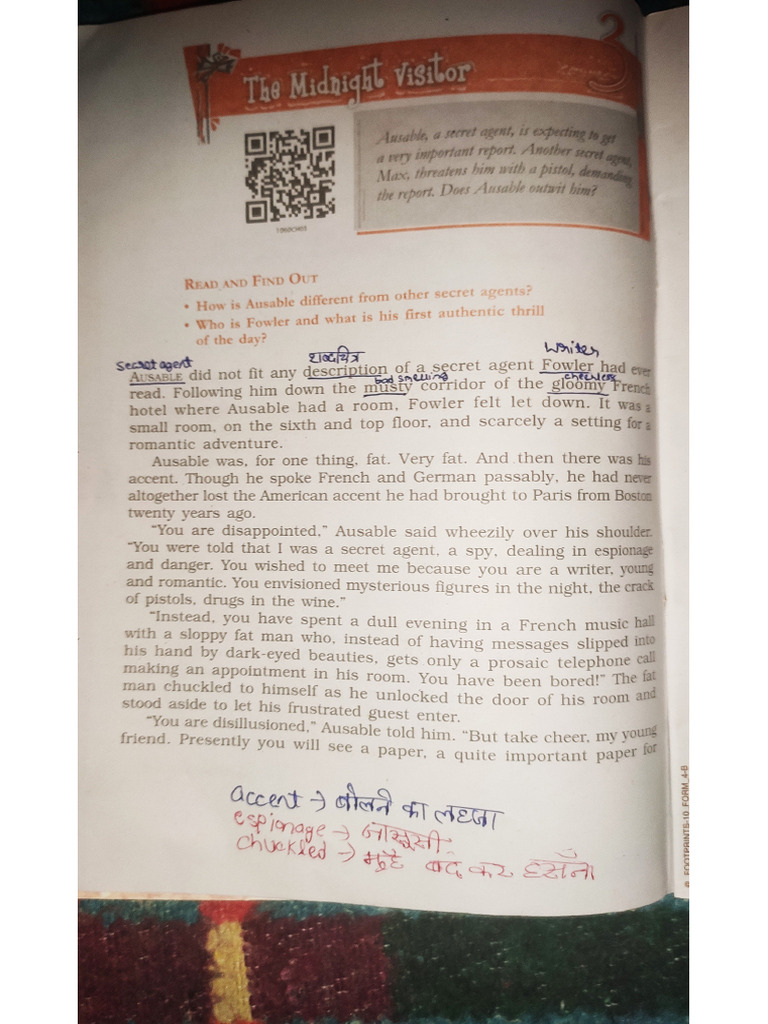 3
The Midnight Visitor
1060CH03
Ausable, a secret agent, is expecting to get
a very important report. Another secret agent,
Max, threatens him with a pistol, demanding
the report. Does Ausable outwit him?
READ AND FIND OUT
• How is Ausable different from other secret agents?
• Who is Fowler and what is his first authentic thrill
of the day?
secret agent शब्दचित्र writer
AUSABLE did not fit any description of a secret agent Fowler had ever
bad smelling
read. Following him down the musty corridor of the gloomy French
hotel where Ausable had a room, Fowler felt let down. It was a
small room, on the sixth and top floor, and scarcely a setting for a
romantic adventure.
Ausable was, for one thing, fat. Very fat. And then there was his
accent. Though he spoke French and German passably, he had never
altogether lost the American accent he had brought to Paris from Boston
twenty years ago.
“You are disappointed,” Ausable said wheezily over his shoulder.
“You were told that I was a secret agent, a spy, dealing in espionage
and danger. You wished to meet me because you are a writer, young
and romantic. You envisioned mysterious figures in the night, the crack
of pistols, drugs in the wine.”
“Instead, you have spent a dull evening in a French music hall
with a sloppy fat man who, instead of having messages slipped into
his hand by dark-eyed beauties, gets only a prosaic telephone call
making an appointment in his room. You have been bored!” The fat
man chuckled to himself as he unlocked the door of his room and
stood aside to let his frustrated guest enter.
“You are disillusioned,” Ausable told him. “But take cheer, my young
friend. Presently you will see a paper, a quite important paper for
accent → बोलने का लहजा
espionage → जासूसी
chuckled → बंद कर हसँना
FOOTPRINTS-10_FORM_4-B